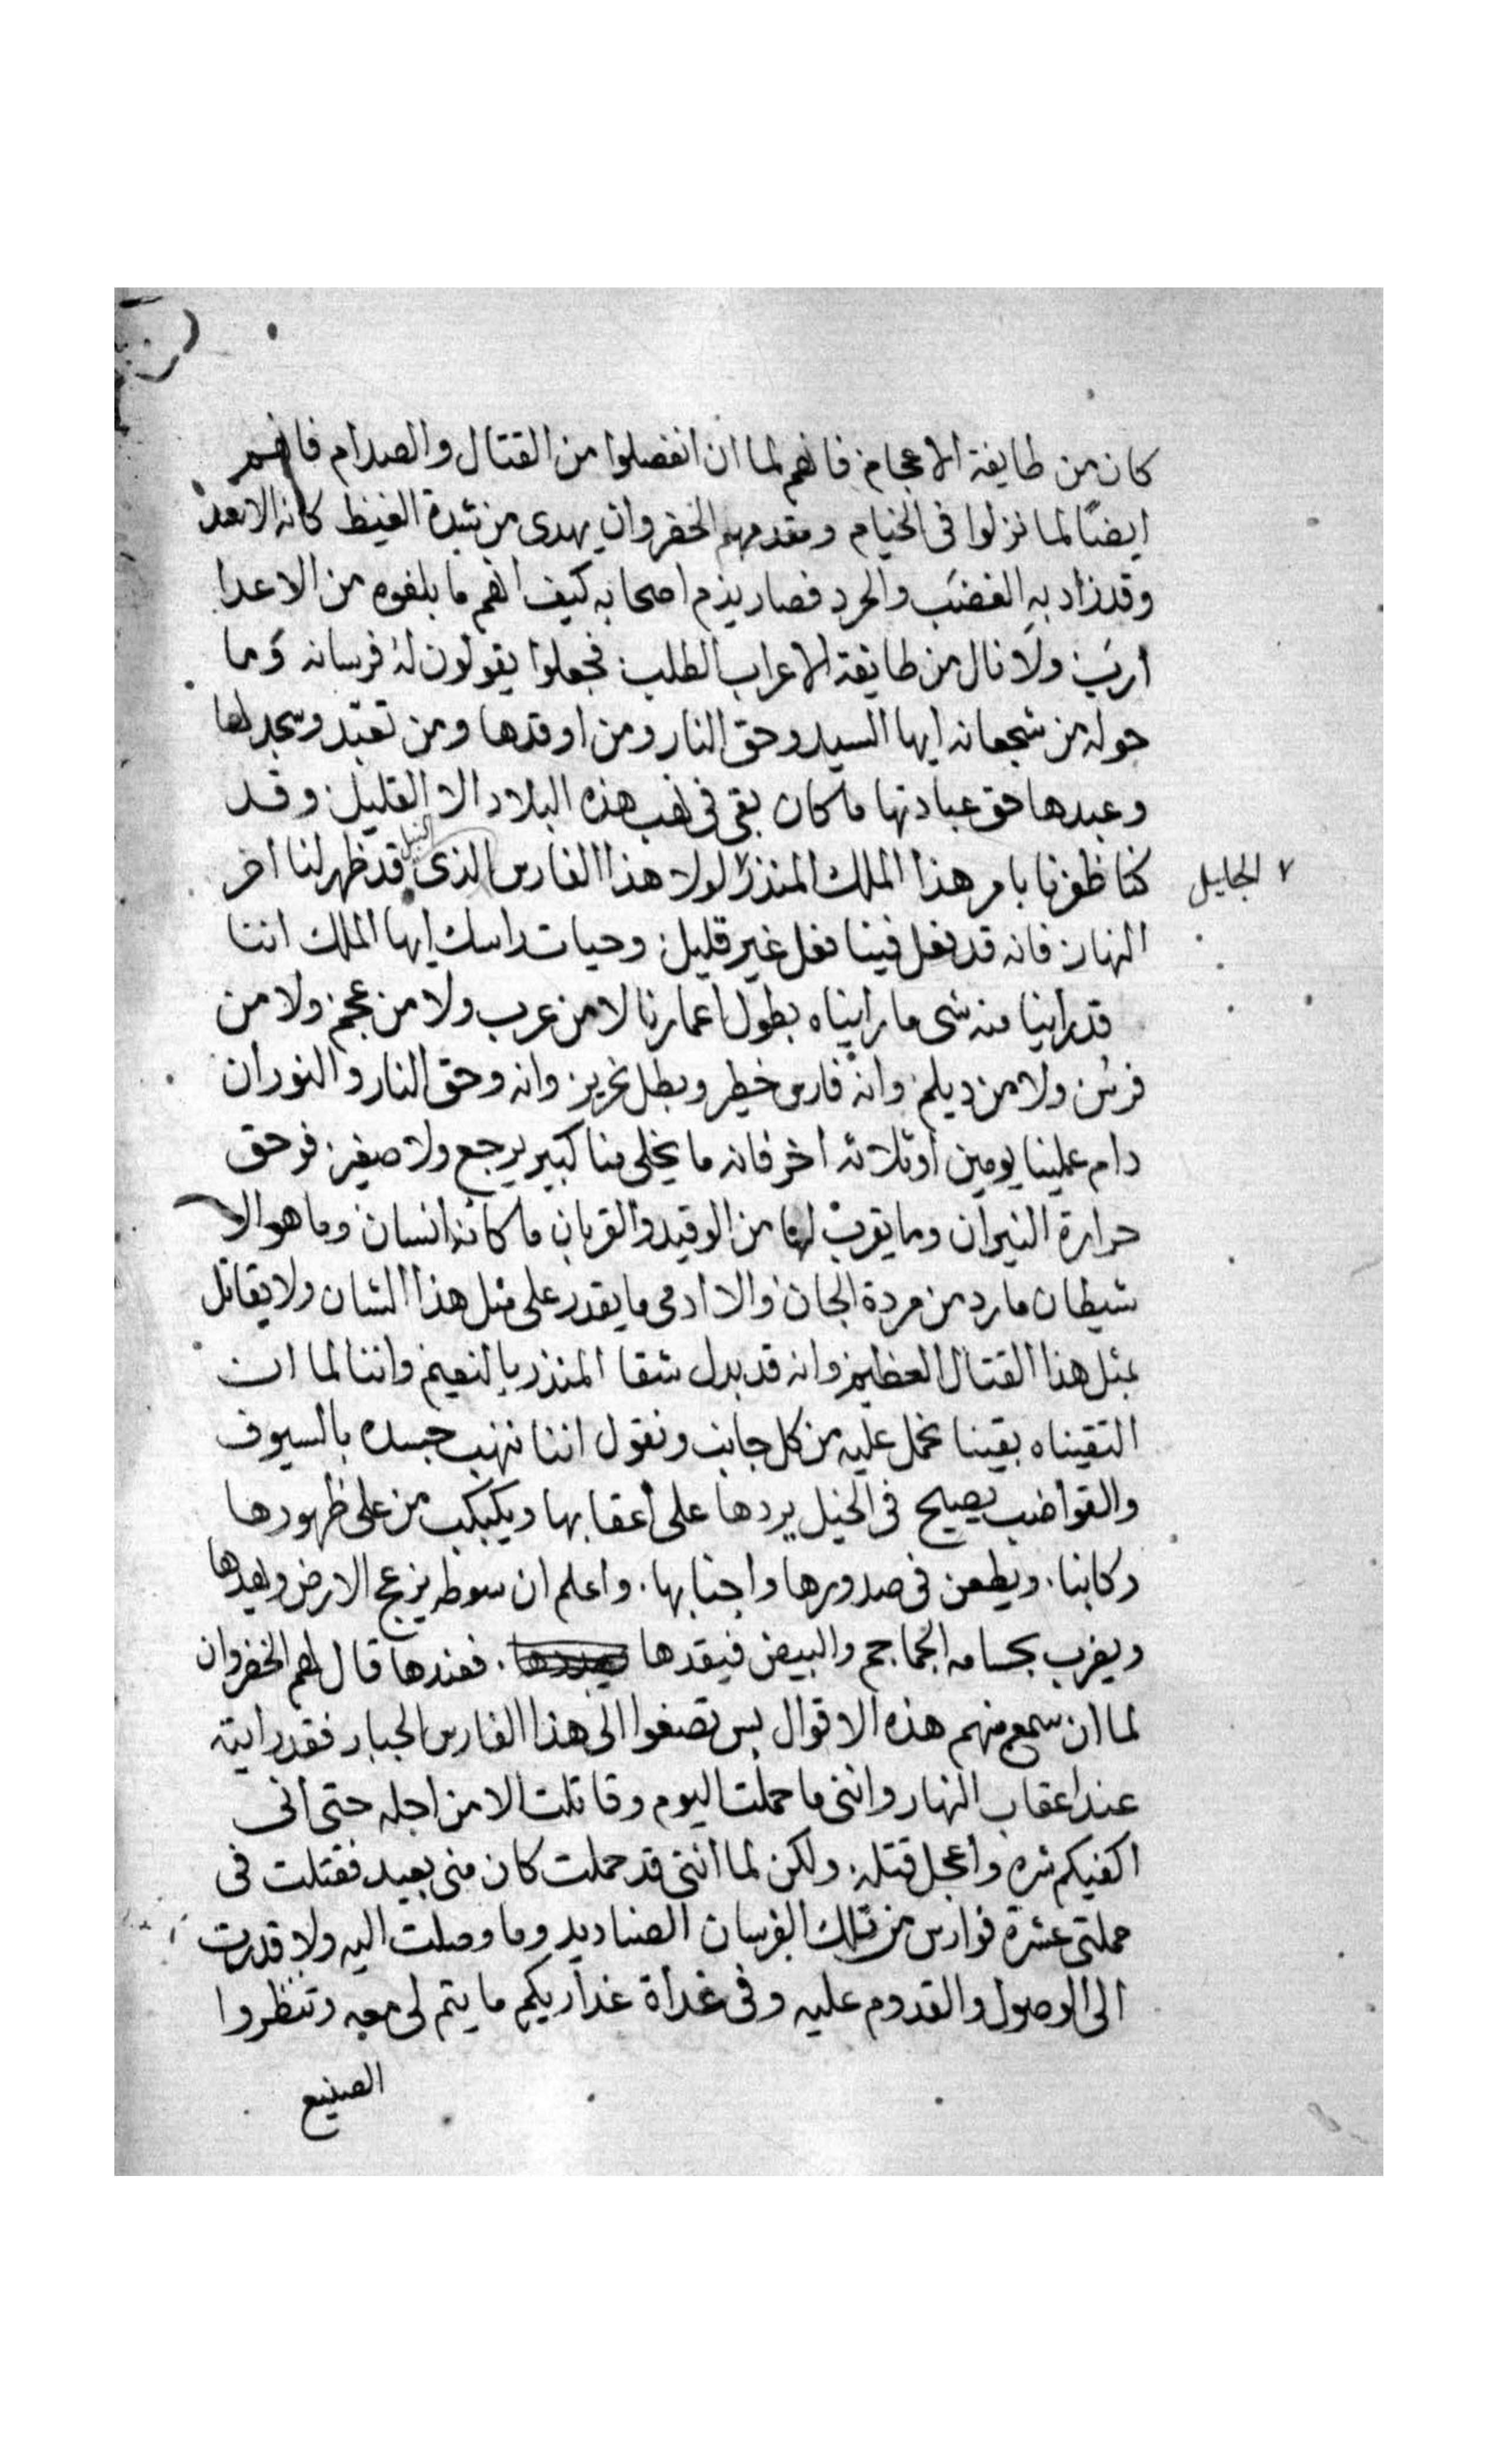 كان من طايفة الاعجام فانهم لما ان انفصلوا من القتال والصدام فانهم
ايضًا لما نزلوا فى الخيام ومقدمهم الخضروان يهدى من شدة الغيظ كانه الاسد
وقد زاد به الغضب والحرد فصار يذم اصحابه كيف انهم ما بلغوه من الاعدا
ارب ولا نال من طايفة الاعراب الطلب فجعلوا يقولون له فرسانه وما
حوله من شجعانه ايها السيد وحق النار ومن اوقدها ومن تعبد وسجد لها
وعبدها حق عبادتها ما كان بقى فى نهب هذه البلاد الا القليل وقد
كنا ظفرنا بامر هذا الملك المنذر لولا هذا الفارس النبيل الذى قد ظهر لنا اخر
الجليل
النهار فانه قد فعل فينا فعل غير قليل وحيات راسك ايها الملك اننا
قد راينا منه شى ما رايناه بطول اعمارنا لا من عرب ولا من عجم ولا من
فرس ولا من ديلم وانه فارس خطير وبطل نحرير وانه وحق النار والنور ان
دام علينا يومين او ثلاثه اخر فانه ما يخلى منا كبير يرجع ولا صغير فوحق
حرارة النيران وما يقرب لها من الوقيد والقربان ما كانه انسان وما هو الا
شيطان مارد من مردة الجان والا ادمى ما يقدر على مثل هذا الشان ولا يقاتل
بمثل هذا القتال العظيم وانه قد بدل شقا المنذر بالنعيم واننا لما ان
التقيناه بقينا نحمل عليه من كل جانب ونقول اننا ننهب جسده بالسيوف
والقواضب يصيح فى الخيل يردها على اعقابها ويكبكب من على ظهورها
ركابنا. ويطعن فى صدورها واجنابها. واعلم ان سوطه يزعج الارض ويهدها
ويضرب بحسامه الجماجم والبيض فيقدها. فعندها قال لهم الخضروان
لما ان سمع منهم هذه الاقوال بس تصغوا الى هذا الفارس الجبار فقد رايته
عند اعقاب النهار واننى ما حملت اليوم وقاتلت الا من اجله حتى انى
اكفيكم شره واعجل قتله ولكن لما اننى قد حملت كان منى بعيد فقتلت فى
حملتى عشرة فوارس من تلك الفرسان الصناديد وما وصلت اليه ولا قدرت
الى الوصول والقدوم عليه وفى غداة غد اريكم ما يتم لى معه وتنظروا
الصنيع